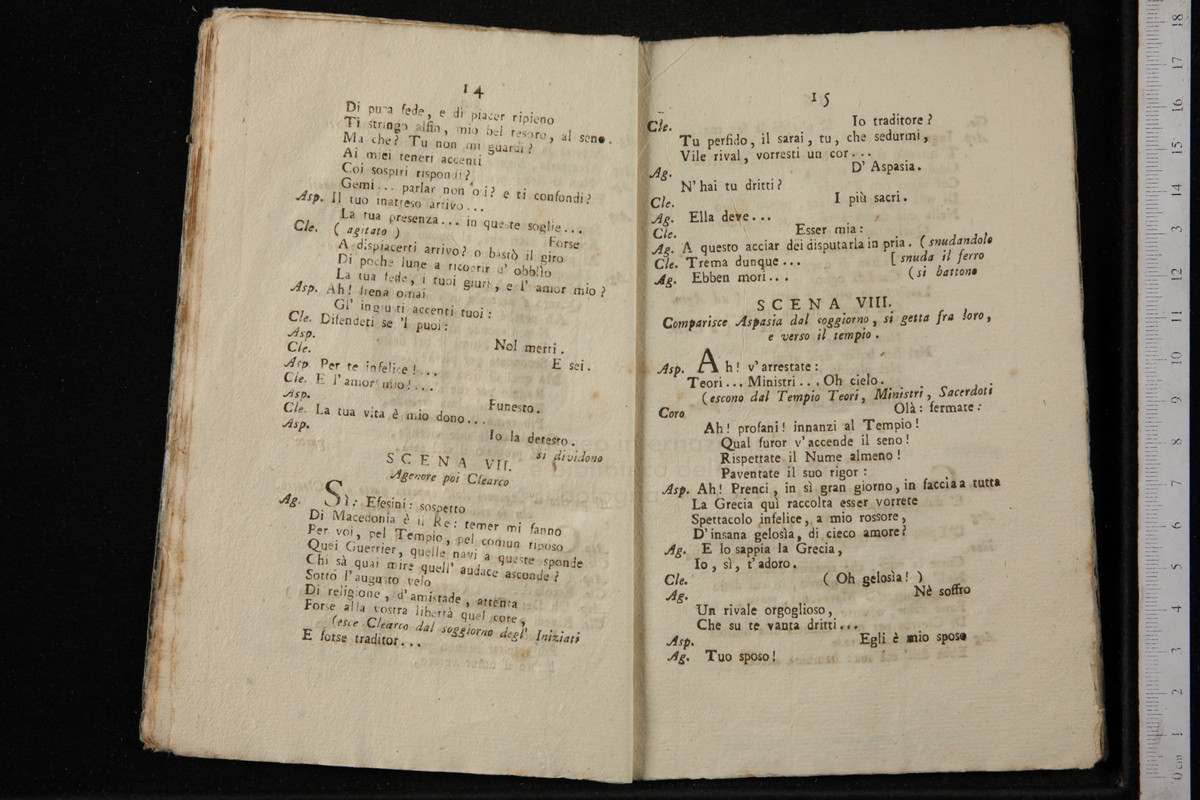 14
Di pura fede, e di piacer ripieno
Ti stringo alfin, mio bel tesoro, al seno.
Ma che? Tu non mi guardi?
Ai miei teneri accenti
Coi sospiri rispondi?
Gemi... parlar non osi? e ti confondi?
Asp. Il tuo inatteso arrivo...
La tua presenza... in queste soglie...
Cle. ( agitato ) Forse
A dispiacerti arrivo? o bastò il giro
Di poche lune a ricoprir d' obblìo
La tua fede, i tuoi giuri, e l' amor mio?
Asp. Ah! frena omai
Gl' ingiusti accenti tuoi:
Cle. Difendeti se 'l puoi:
Asp. Nol merti.
Cle. E sei.
Asp. Per te infelice!...
Cle. E l'amor mio!...
Asp. Funesto.
Cle. La tua vita è mio dono...
Asp. Io la detesto.
si dividono
SCENA VII.
Agenore poi Clearco
Ag. Sì; Efesini: sospetto
Di Macedonia è il Re: temer mi fanno
Per voi, pel Tempio, pel comun riposo
Quei Guerrier, quelle navi a queste sponde
Chi sà quai mire quell' audace asconde?
Sotto l'augusto velo
Di religione, d'amistade, attenta
Forse alla vostra libertà quel core,
(esce Clearco dal soggiorno degl' Iniziati
E forse traditor...
15
Cle. Io traditore?
Tu perfido, il sarai, tu, che sedurmi,
Vile rival, vorresti un cor...
Ag. D' Aspasia.
N' hai tu dritti?
Cle. I più sacri.
Ag. Ella deve...
Cle. Esser mia:
Ag. A questo acciar dei disputarla in pria. (snudandolo
Cle. Trema dunque... [ snuda il ferro
Ag. Ebben mori... (si battono
SCENA VIII.
Comparisce Aspasia dal soggiorno, si getta fra loro,
e verso il tempio.
Asp. Ah! v' arrestate:
Teori... Ministri... Oh cielo.
(escono dal Tempio Teori, Ministri, Sacerdoti
Coro Olà: fermate:
Ah! profani! innanzi al Tempio!
Qual furor v' accende il seno!
Rispettate il Nume almeno!
Paventate il suo rigor:
Asp. Ah! Prenci, in sì gran giorno, in faccia a tutta
La Grecia quì raccolta esser vorrete
Spettacolo infelice, a mio rossore,
D' insana gelosìa, di cieco amore?
Ag. E lo sappia la Grecia,
Io, sì, t' adoro.
Cle. ( Oh gelosìa! )
Ag. Nè soffro
Un rivale orgoglioso,
Che su te vanta dritti...
Asp. Egli è mio sposo
Ag. Tuo sposo!
18
17
16
15
14
13
12
11
10
9
8
7
6
5
4
3
2
1
0 cm